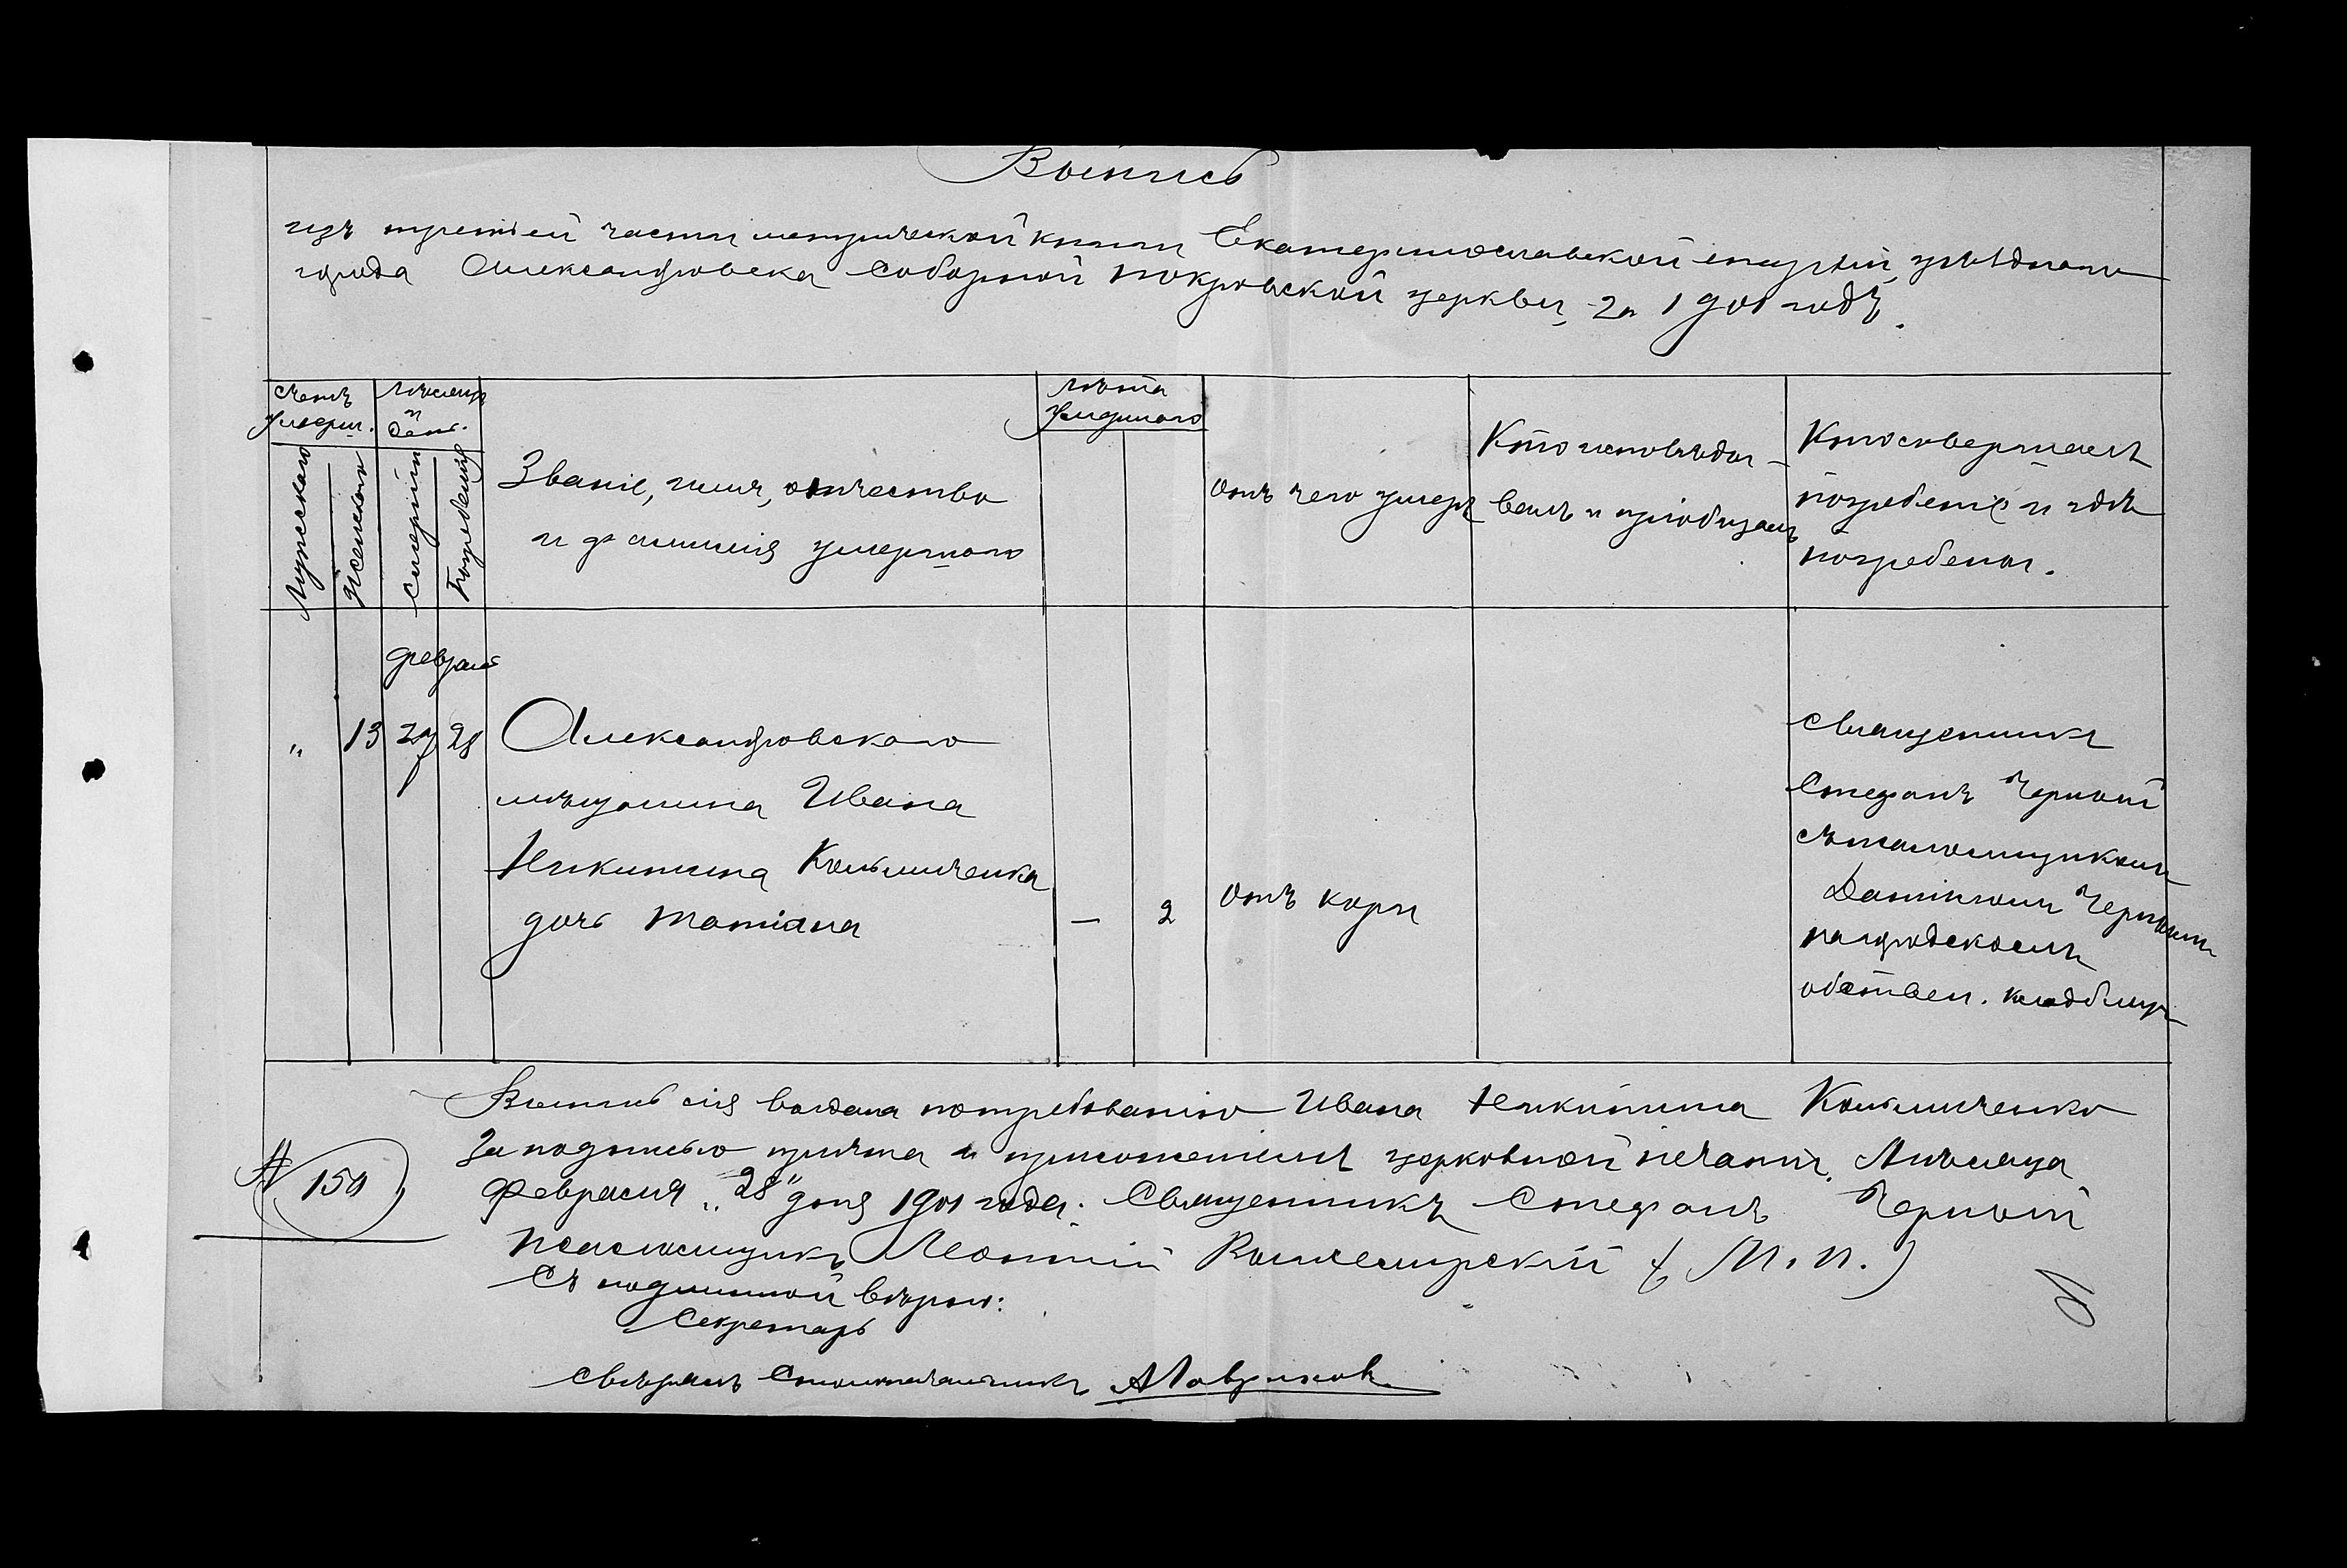 Выпись
изъ третіей части метрической книги Екатеринославской епархіи, уѣзднаго
города Александровска Соборной Покровской церкви, за 1901 годъ.
Счетъ умерш.
Мужескаго
Женскаго
Мѣсяцъ и день.
Смерти
Погребенія
Званіе, имя, отчество
и фамилія умершаго
Лѣта умершаго
Отъ чего умеръ
Кто исповѣды-
валъ и пріобщалъ
Кто совершалъ
погребеніе и гдѣ
погребены.
Февраль
" 13 27 28
Александровскаго
мѣщанина Ивана
Никитина Кольмиченка
дочь Татіана
— 2
Отъ кори
Священникъ
Стефанъ Черный
съ псаломщикомъ
Чернымъ
на городскомъ
обствен. кладбищѣ
Выпись сія выдана по требованію Ивана Никитина Кольмиченко
за подписью причта и приложеніемъ церковной печати. Мѣсяца
Февраля „28" дня 1901 года. Священникъ Стефанъ Черный
Псаломщикъ Леонтій (М. П.)
№ 150
Съ подлинной вѣрно:
Секретарь
Свѣрялъ Столоначальникъ